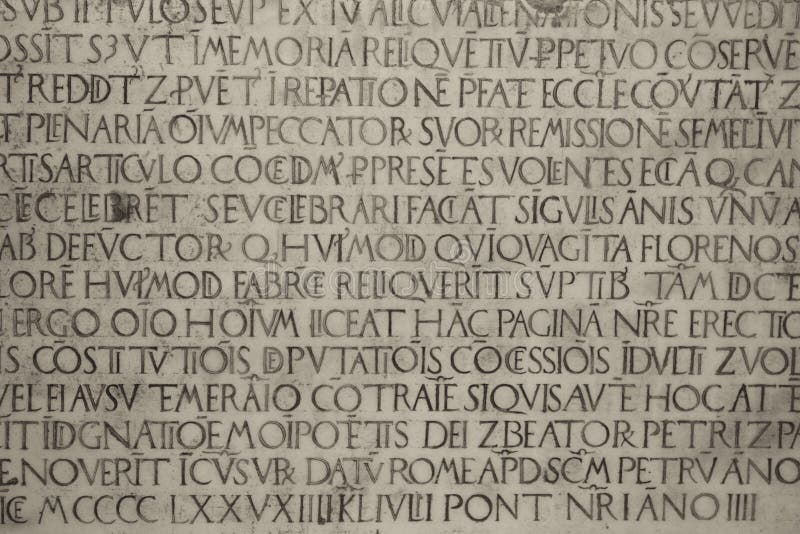 SVB II TVLO SEVP EX IV ALICVI ALIENATIONIS SEV VEDIT
OSSĪT S3 VT ĪMEMORIĀ RELIQVĒTIV̄ PPETVO CŌSERVĒ
T REDDĪT Z PVĒT ĪREPATIONĒ PFATE ECCLE COVTĀT Z
ET PLENARIĀ OĪVM PECCATOR SVOR REMISSIONĒ SEMEL Ī VIT
RTIS ARTICVLO COCEDIM PPRESĒTES VOLENTES ECIĀ Q CAN
CIĒ CELEBRĒT SEV CELEBRARI FACIĀT SĪGVLIS ĀNIS VNV̄ A
AB DEFVCTOR Q HVIMOD QVĪQVAGĪTA FLORENOS
LORĒ HVIMOD FABRCE RELIQVERĪT SVPTIB TĀM DCTE
I ERGO OĪO HOĪVM LICEAT HĀC PAGINĀ NRĒ ERECTIO
IS CŌSTITVTIŌIS DPVTATIŌIS COCESSIŌIS IDVLTI Z VOL
VEL EI AVSV TEMERĀIO COTRAIĒ SIQVIS AVTĒ HOC ATTE
CIT IIDGNATIOĒM OĪPOTĒTIS DEI Z BEATOR PETRI Z PA
E NOVERIT ĪCVSVR DATV̄ ROME APD SCM PETRV̄ ĀNO
IĒ MCCCC LXXVXIIII KL IVLII PONT NRI ĀNO IIII